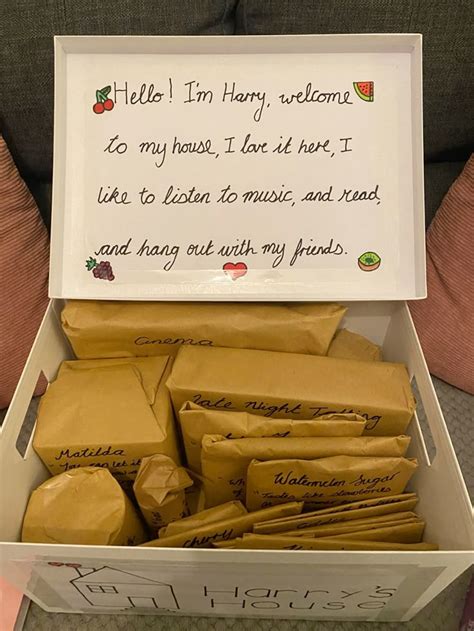 Hello! I'm Harry, welcome
to my house, I love it here, I
like to listen to music, and read,
and hang out with my friends.
Cinema
Late Night Talking
Matilda
"You can let it
Watermelon Sugar
"Tastes like strawberries
Cherry
Harry's
House